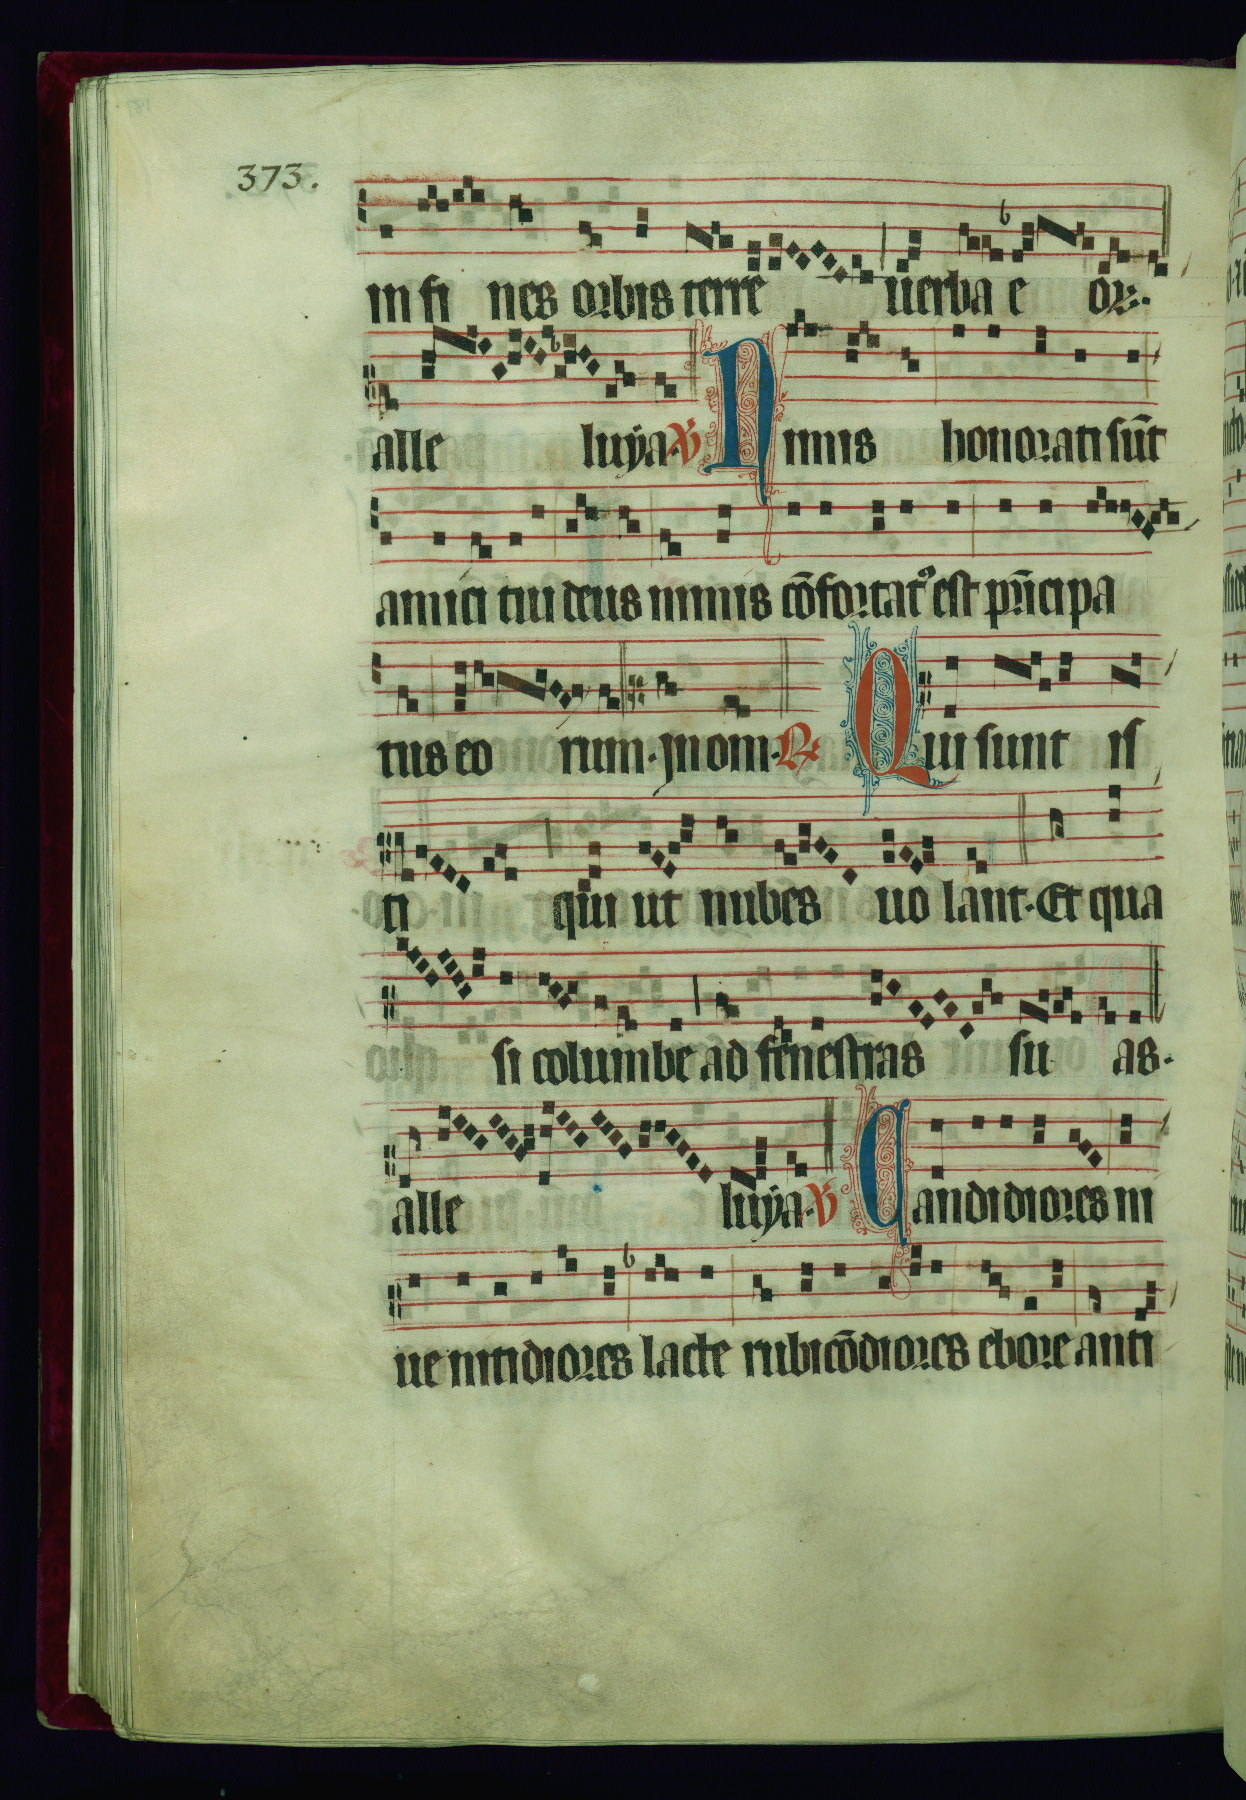 373.
in fi nes orbis terre uerba e oꝝ.
alle luÿa. ℣ Nimis honorati sūt
amici tui deus nimis cōfortatꝰ est pͥncipa
tus eo rum. In om. ℟ Qui sunt is
ti qui ut nubes uo lant. Et qua
si columbe ad fenestras su as.
alle luÿa. ℣ Candidiores ni
ue nitidiores lacte rubicōdiores ebore anti